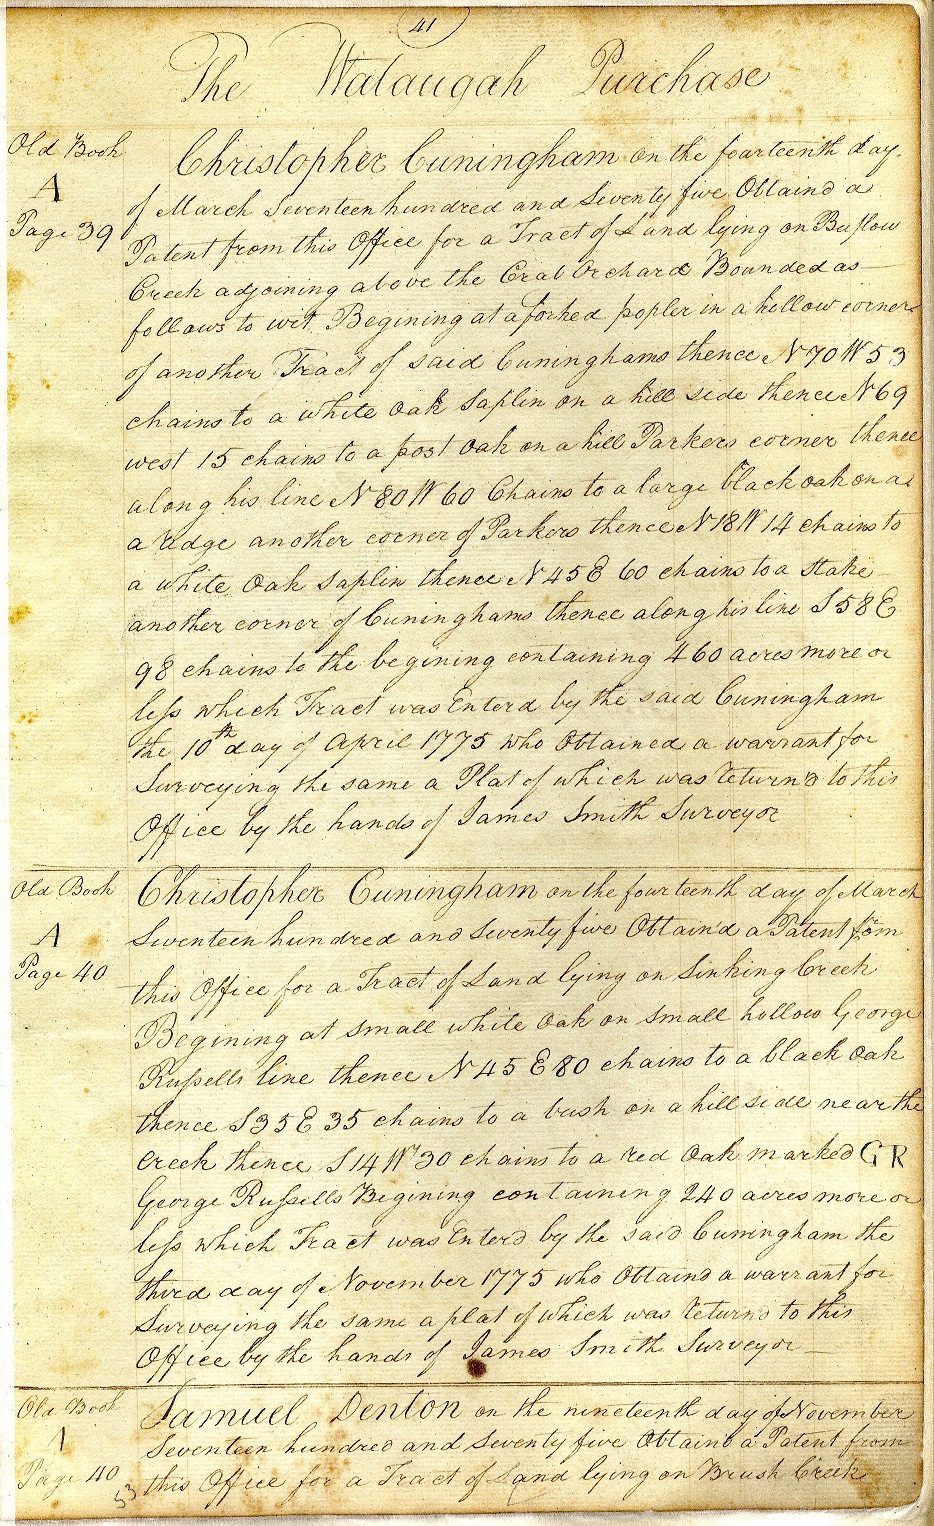 41
The Wataugah Purchase
Old Book
A
Page 39
Christopher Cuningham on the fourteenth day
of March Seventeen hundred and Seventy five Obtaind a
Patent from this Office for a Tract of Land lying on Buflow
Creek adjoining above the Crab Orchard Bounded as
follows to wit. Begining at a forked popler in a hollow corner
of another Tract of said Cuninghams thence N 70 W 53
chains to a white Oak Saplin on a hill side thence N 69
west 15 chains to a post Oak on a hill Parkers corner thence
along his line N 80 W 60 Chains to a large black oak on a
a ridge another corner of Parkers thence N 18 W 14 chains to
a white Oak Saplin thence N 45 E 60 chains to a stake
another corner of Cuninghams thence along his line S 58 E
98 chains to the begining containing 460 acres more or
less which Tract was Enterd by the said Cuningham
the 10th day of April 1775 who Obtained a warrant for
Surveying the same a Plat of which was returnd to this
Office by the hands of James Smith Surveyor
Old Book
A
Page 40
Christopher Cuningham on the fourteenth day of March
Seventeen hundred and Seventy five Obtaind a Patent from
this Office for a Tract of Land lying on Sinking Creek
Begining at small white Oak on small hollow George
Russells line thence N 45 E 80 chains to a black Oak
thence S 35 E 35 chains to a bush on a hill side near the
creek thence S 14 W 30 chains to a red Oak marked G R
George Russells Begining containing 240 acres more or
less which Tract was Enterd by the said Cuningham the
third day of November 1775 who Obtaind a warrant for
Surveying the same a plat of which was returnd to this
Office by the hands of James Smith Surveyor
Old Book
A
Page 40
Samuel Denton on the nineteenth day of November
Seventeen hundred and Seventy five Obtaind a Patent from
this Office for a Tract of Land lying on Brush Creek
53